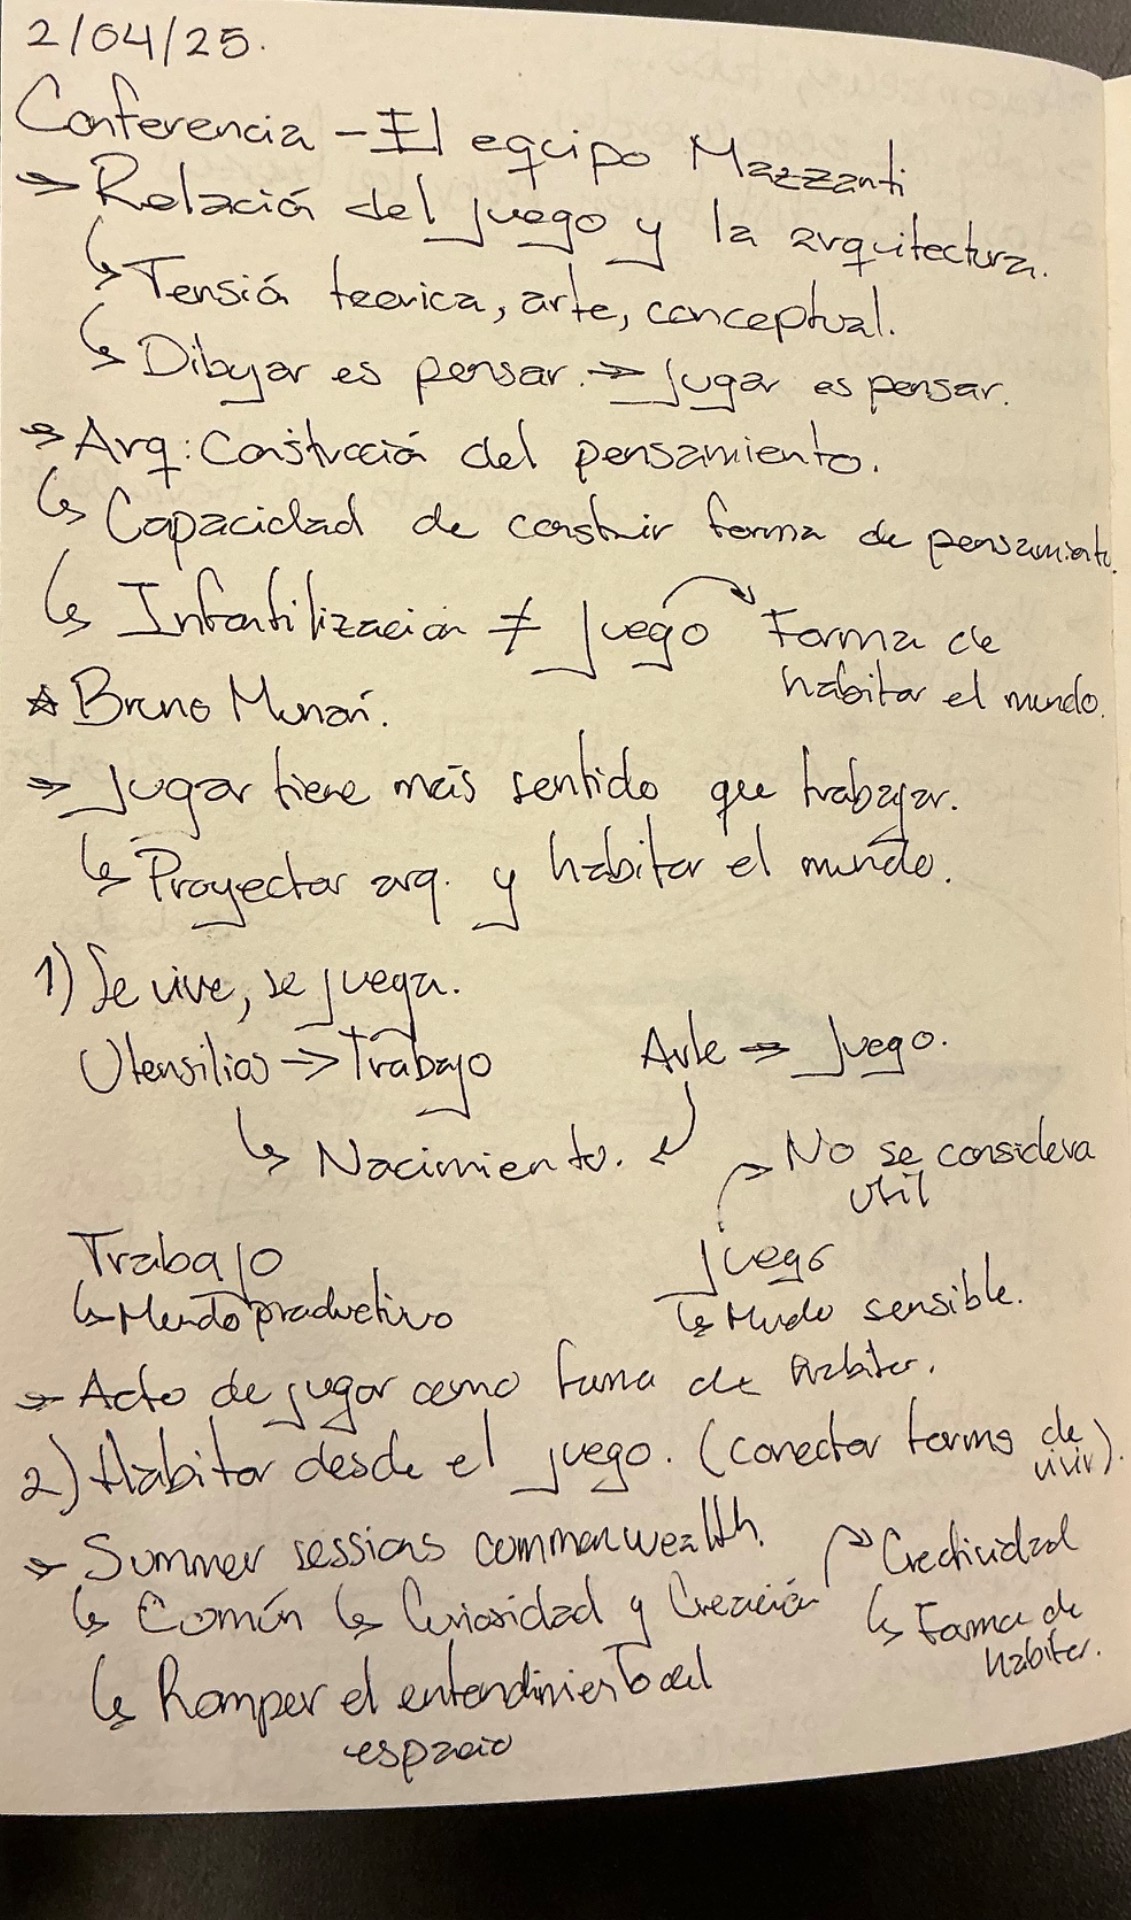 2/04/25.
Conferencia - El equipo Mazzanti
→ Relación del juego y la arquitectura.
↳ Tensió teorica, arte, conceptual.
↳ Dibujar es pensar. → jugar es pensar.
→ Arq: Constucció del pensamiento.
↳ Capacidad de constuir forma de pensamiento.
↳ Infantilización ≠ juego → Forma de
habitar el mundo.
☆ Bruno Munari.
→ Jugar tiene más sentido que trabajar.
↳ Proyectar arq. y habitar el mundo.
1) Se vive, se juega.
Utensilios → Trabajo Arte → Juego.
↳ Nacimiento. ↙
→ No se considera
util
Trabajo juego
↳ Mundo productivo ↳ Mudo sensible.
→ Acto de jugar como forma de habitar.
2) Habitar desde el juego. (conectar forms de
vivir).
→ Summer sessions commonwealth.
↳ Común ↳ Curiosidad y Creación → Creatividad
↳ Forma de
habitar.
↳ Romper el entendimiento del
espacio